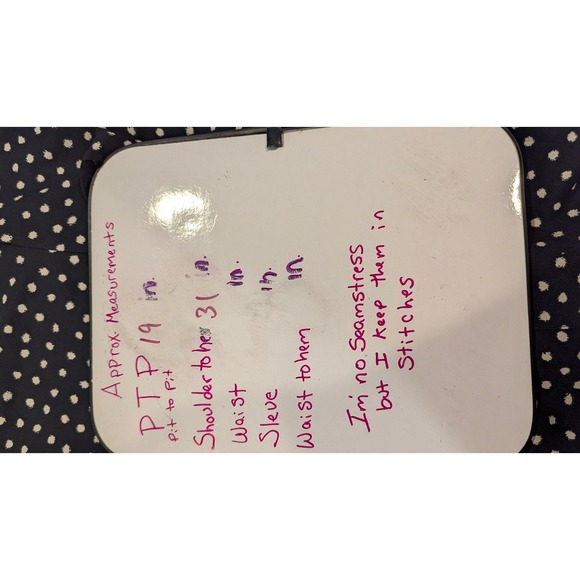 Approx. Measurements
PTP 19 in.
Pit to Pit
Shoulder to hem 31 in.
Waist in.
Sleve in.
Waist to hem in.
I'm no Seamstress
but I keep them in
Stitches